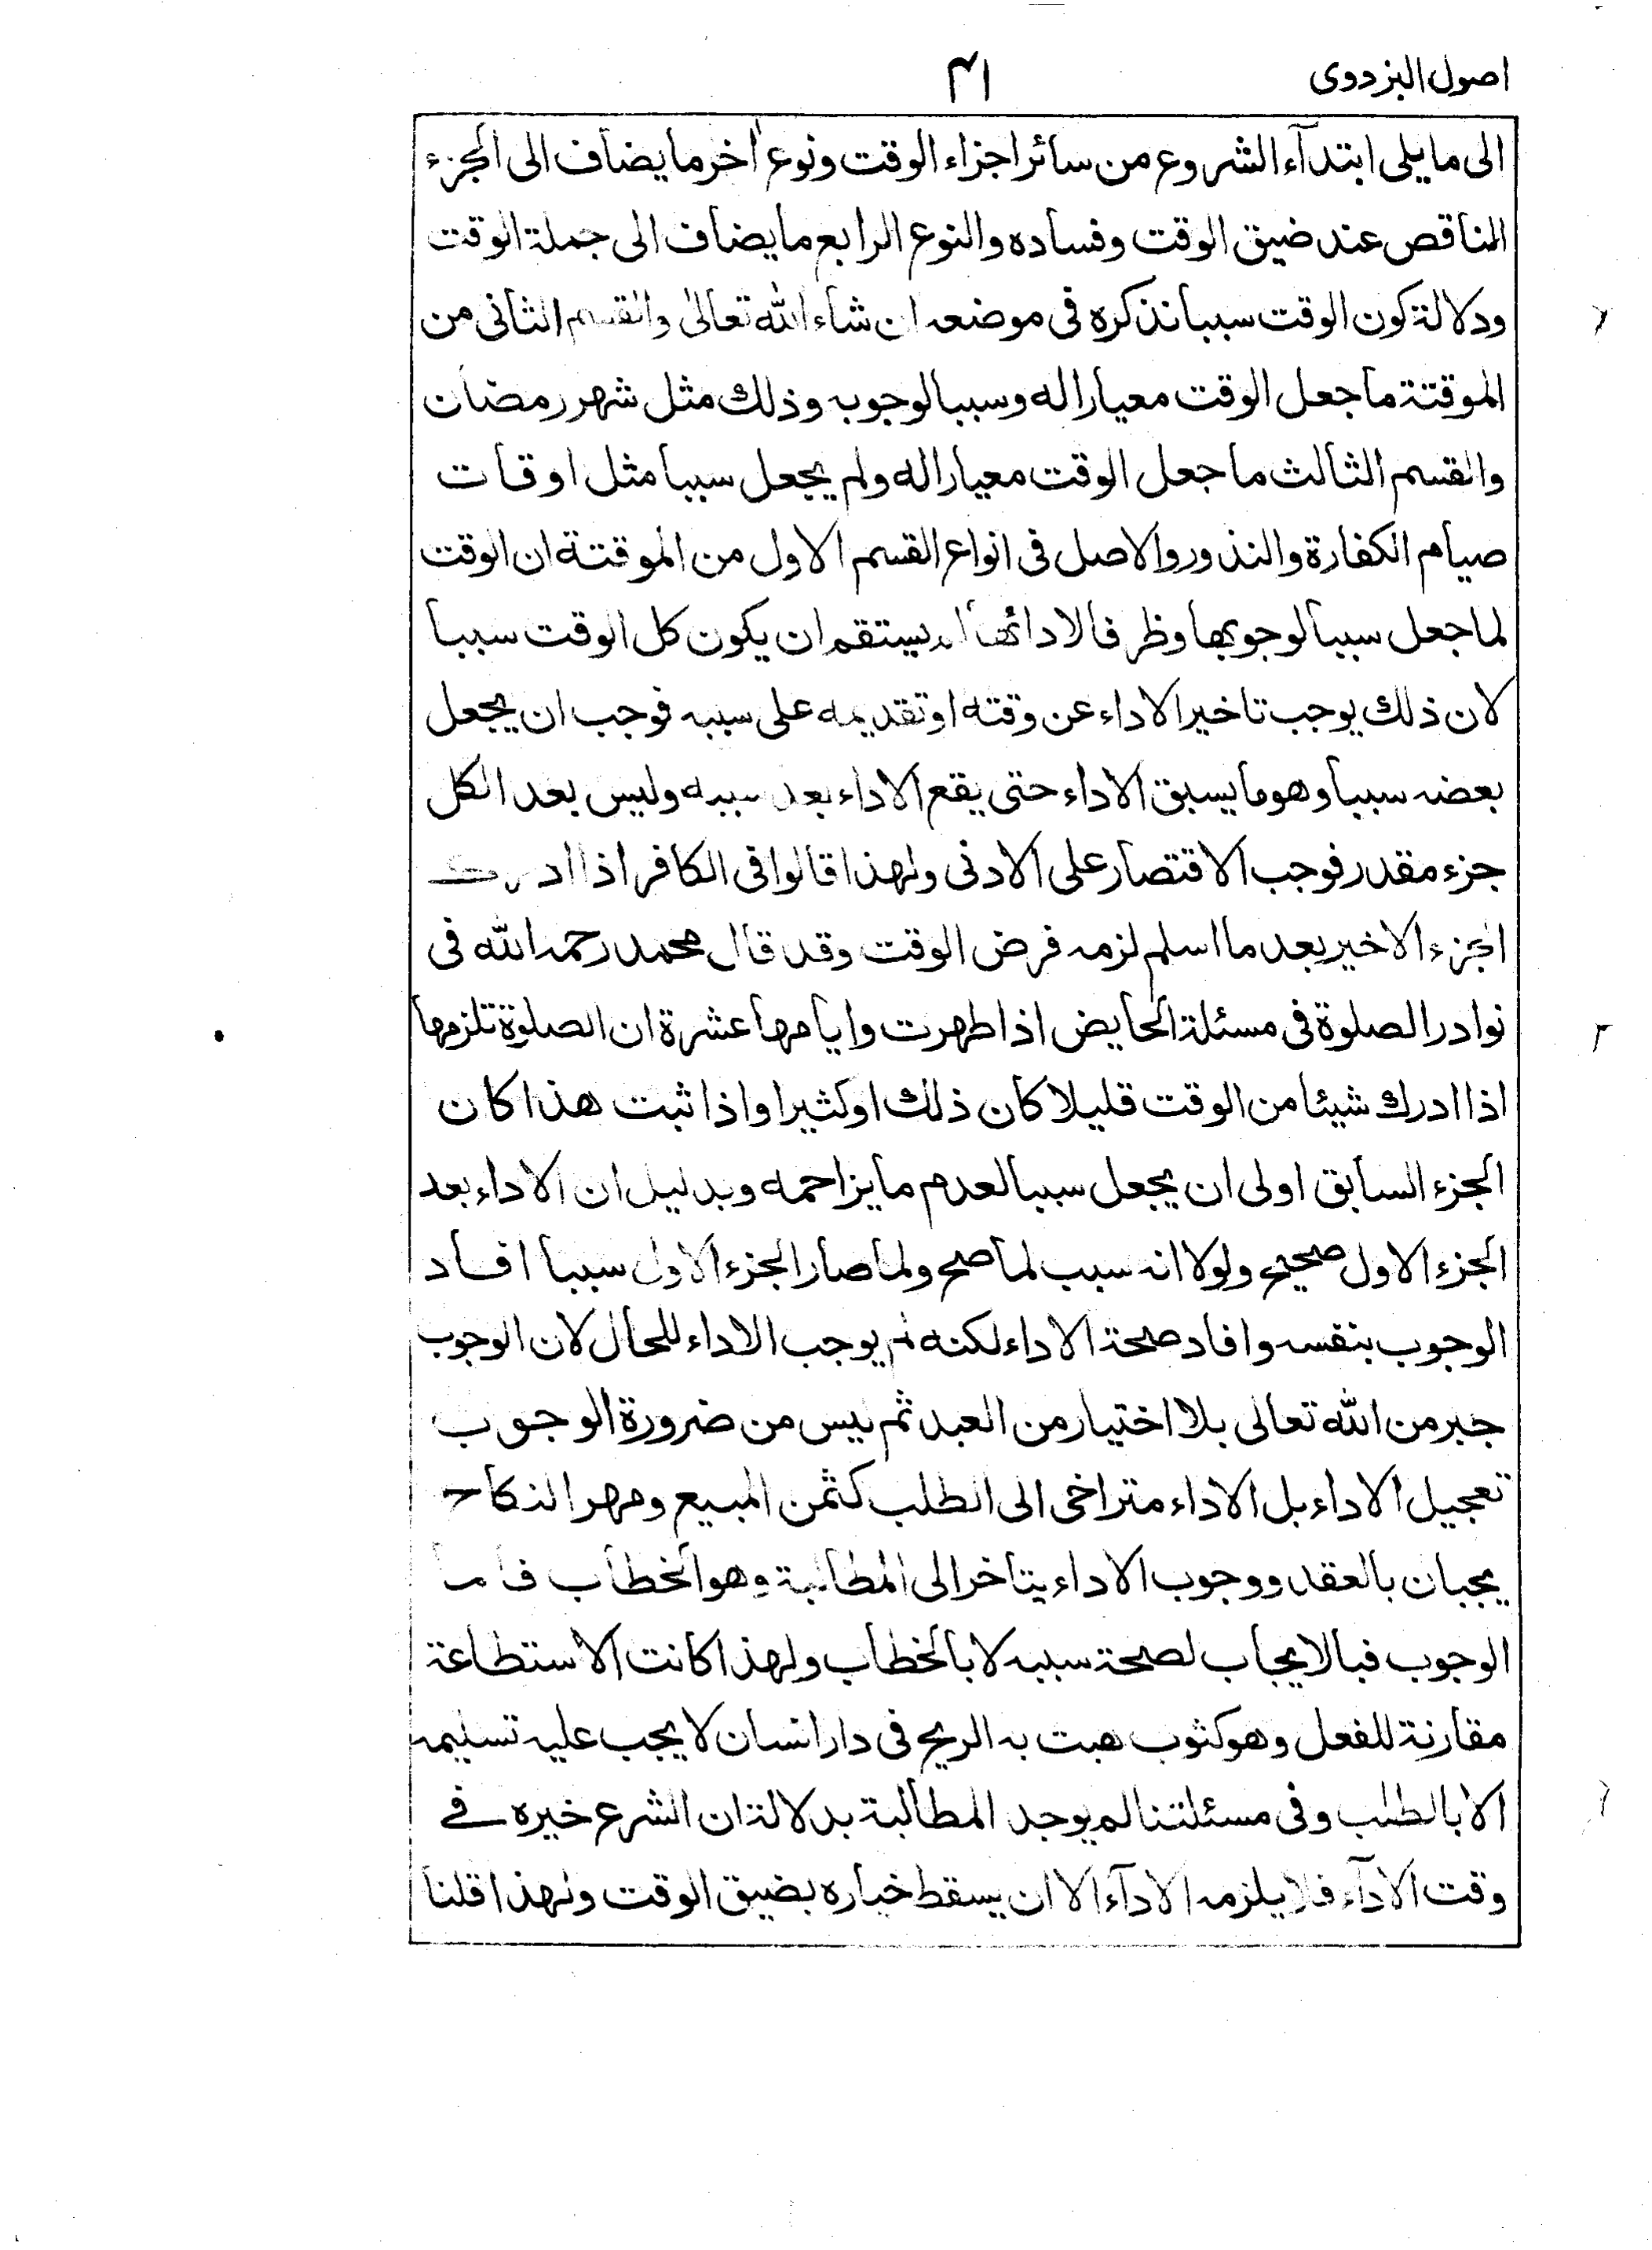 اصول البزدوى
۴۱
الى ما يلى ابتدآء الشروع من سائر اجزاء الوقت ونوع اخر ما يضاف الى الجزء
الناقص عند ضيق الوقت وفساده والنوع الرابع ما يضاف الى جملة الوقت
ودلالة كون الوقت سببا نذكره فى موضعه ان شاء الله تعالىٰ والقسم الثانى من
الموقتة ما جعل الوقت معيارا له وسببا لوجوبه وذلك مثل شهر رمضان
والقسم الثالث ما جعل الوقت معيارا له ولم يجعل سببا مثل اوقات
صيام الكفارة والنذور والاصل فى انواع القسم الاول من الموقتة ان الوقت
لما جعل سببا لوجوبها وظرفا لادائها لم يستقم ان يكون كل الوقت سببا
لان ذلك يوجب تاخير الاداء عن وقته او تقديمه على سببه فوجب ان يجعل
بعضه سببا وهو ما يسبق الاداء حتى يقع الاداء بعد سببه وليس بعد الكل
جزء مقدر فوجب الاقتصار على الادنى ولهذا قالوا فى الكافر اذا ادرك
الجزء الاخير بعد ما اسلم لزمه فرض الوقت وقد قال محمد رحمه الله فى
نوادر الصلوة فى مسئلة الحايض اذا طهرت وايامها عشرة ان الصلوة تلزمها
اذا ادرك شيئا من الوقت قليلا كان ذلك او كثيرا واذا ثبت هذا كان
الجزء السابق اولى ان يجعل سببا لعدم ما يزاحمه وبدليل ان الاداء بعد
الجزء الاول صحيح ولولا انه سبب لما صح ولما صار الجزء الاول سببا افاد
الوجوب بنفسه وافاد صحة الاداء لكنه لم يوجب الاداء للحال لان الوجوب
جبر من الله تعالى بلا اختيار من العبد ثم ليس من ضرورة الوجوب
تعجيل الاداء بل الاداء متراخى الى الطلب كثمن المبيع ومهر النكاح
يجبان بالعقد ووجوب الاداء يتاخر الى المطالبة وهو الخطاب فاما
الوجوب فبالايجاب لصحة سببه لا بالخطاب ولهذا كانت الاستطاعة
مقارنة للفعل وهو كثوب هبت به الريح فى دار انسان لا يجب عليه تسليمه
الا بالطلب وفى مسئلتنا لم يوجد المطالبة بدلالة ان الشرع خيره فے
وقت الادآء فلا يلزمه الادآء الا ان يسقط خياره بضيق الوقت ولهذا قلنا